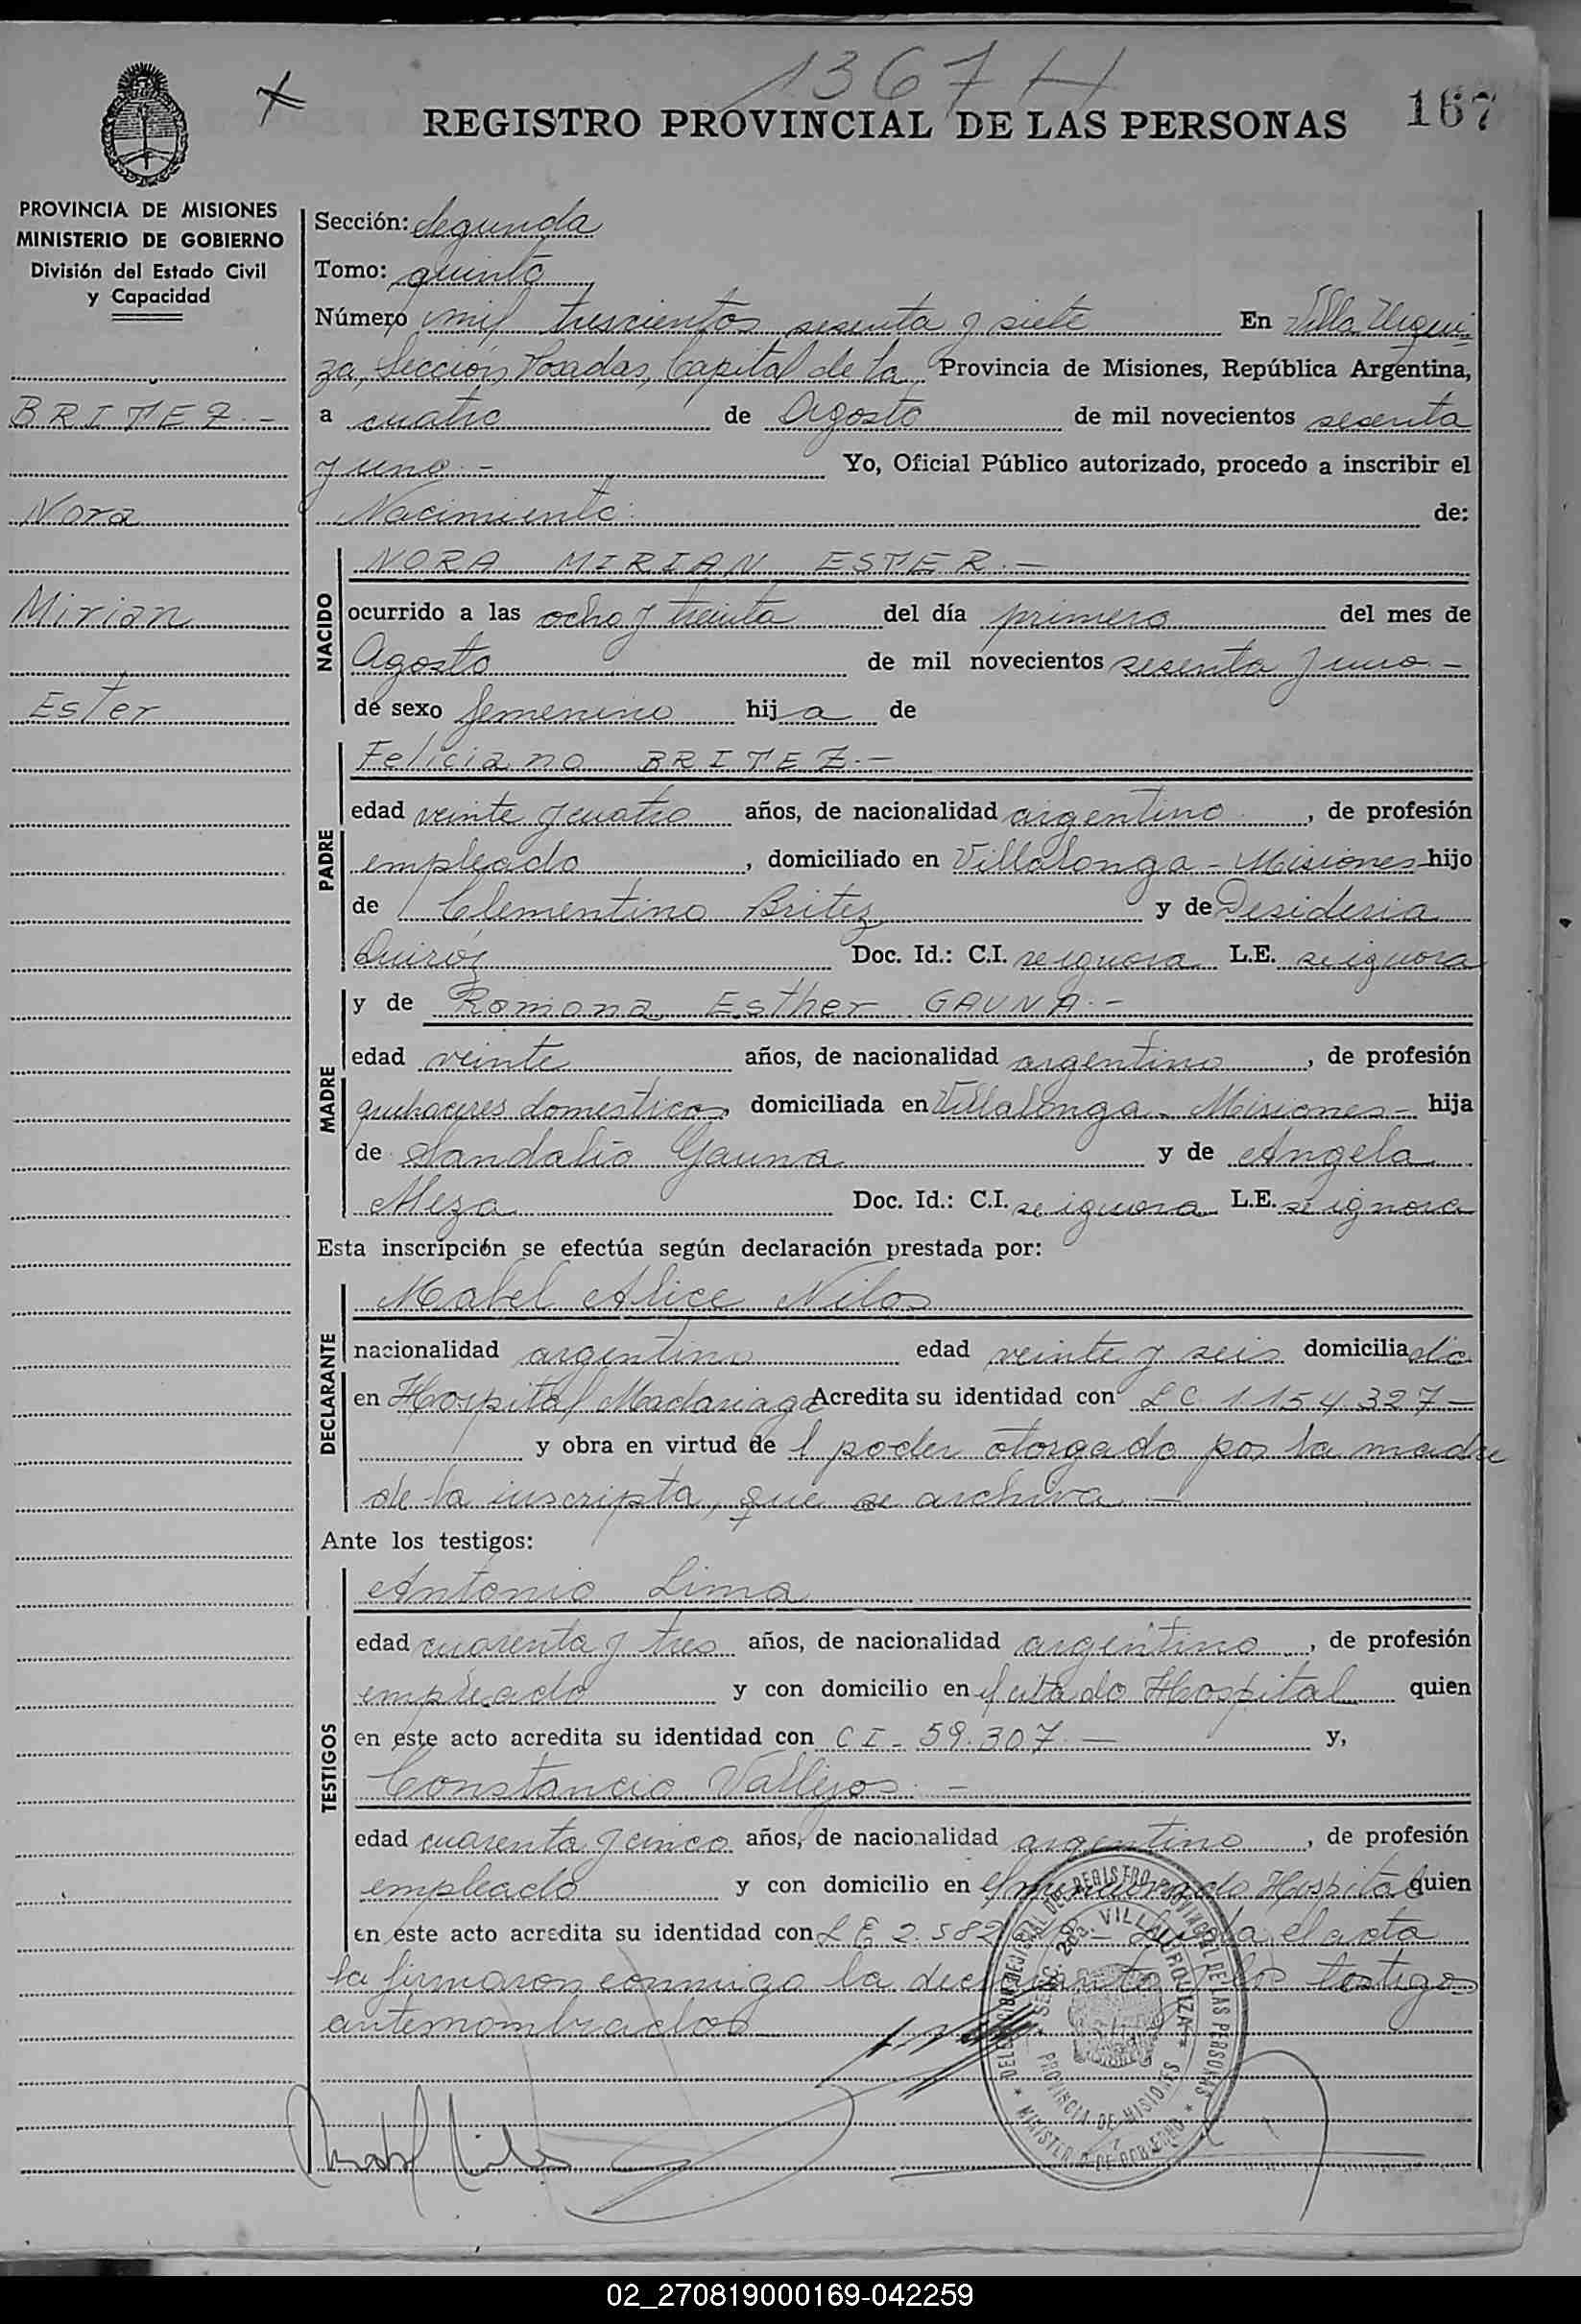 1367 H
REGISTRO PROVINCIAL DE LAS PERSONAS 167
PROVINCIA DE MISIONES
MINISTERIO DE GOBIERNO
División del Estado Civil
y Capacidad
BRITEZ.-
Nora
Mirian
Ester
Sección: Segunda
Tomo: quinto
Número mil trescientos sesenta y siete En Villa Urqui-
za, Sección Posadas, Capital de la Provincia de Misiones, República Argentina,
a cuatro de Agosto de mil novecientos sesenta
y uno.- Yo, Oficial Público autorizado, procedo a inscribir el
Nacimiento de:
NACIDO
NORA MIRIAN ESTER.-
ocurrido a las ocho y treinta del día primero del mes de
Agosto de mil novecientos sesenta y uno.-
de sexo femenino hija de
PADRE
Feliciano BRITEZ.-
edad veinte y cuatro años, de nacionalidad argentino, de profesión
empleado, domiciliado en Villalonga - Misiones hijo
de Clementino Britez y de Desideria
Quiróz Doc. Id.: C.I. se ignora L.E. se ignora
MADRE
y de Ramona Esther GAUNA.-
edad veinte años, de nacionalidad argentina, de profesión
quehaceres domesticos domiciliada en Villalonga - Misiones - hija
de Sandalio Gauna y de Angela
Meza Doc. Id.: C.I. se ignora L.E. se ignora
Esta inscripción se efectúa según declaración prestada por:
DECLARANTE
Mabel Alice Nilos
nacionalidad argentina edad veinte y seis domiciliada
en Hospital Madariaga Acredita su identidad con L C 1.154.327-
y obra en virtud de l poder otorgado por la madre
de la inscripta, que se archiva.-
Ante los testigos:
TESTIGOS
Antonio Lima
edad cuarenta y tres años, de nacionalidad argentino, de profesión
empleado y con domicilio en el citado Hospital quien
en este acto acredita su identidad con C I - 59.307.- y,
Constancio Vallejos.-
edad cuarenta y cinco años, de nacionalidad argentino, de profesión
empleado y con domicilio en el mencionado Hospital quien
en este acto acredita su identidad con L E 2.582 Leida el acta
la firmaron conmigo la declarante y los testigos
antenombrados
SECC. 2da. VILLA URQUIZA
PROVINCIA DE MISIONES
MINISTERIO DE GOBIERNO
02_270819000169-042259